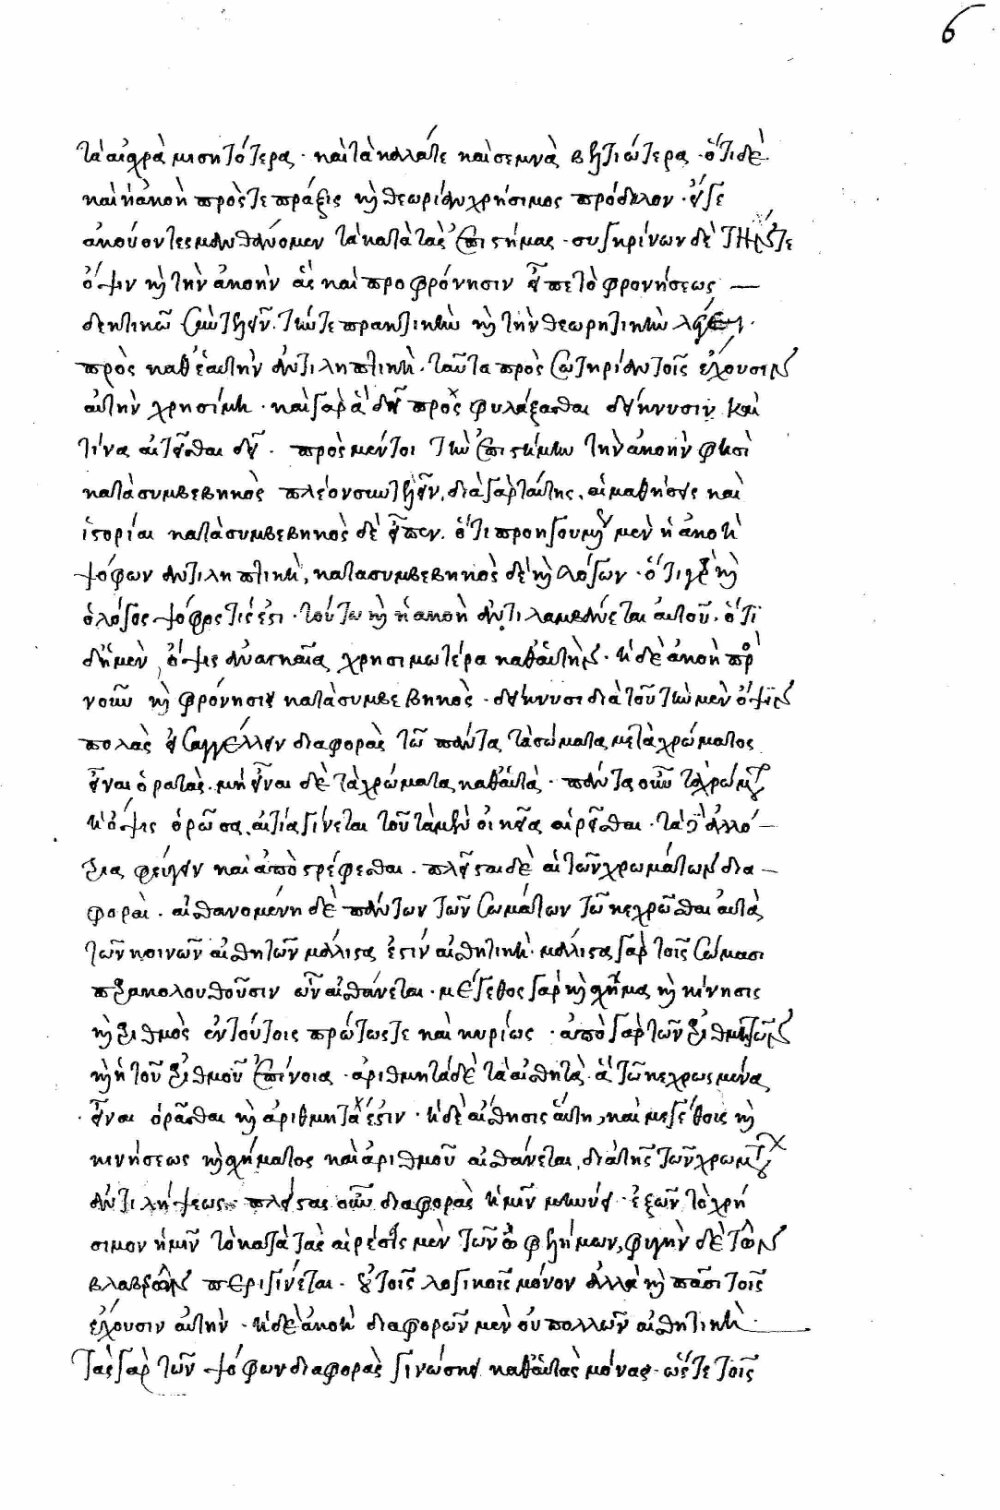 6
τὰ αἰσχρὰ μισητότερα · καὶ τὰ καλά τε καὶ σεμνὰ βελτιώτερα · ὅτι δὲ
καὶ ἡ ἀκοὴ πρός τε πράξεις καὶ θεωρίαν χρήσιμος πρόδηλον · εἴ γε
ἀκούοντες μανθάνομεν τὰ κατὰ τὰς ἐπιστήμας · συγκρίνων δὲ τήν τε
ὄψιν καὶ τὴν ἀκοὴν ὡς καὶ πρὸ φρόνησιν εἶπε τὸ φρονήσεως —
δεκτικῶν συντελεῖν · τήν τε πρακτικὴν καὶ τὴν θεωρητικὴν λέγει ·
πρὸς καθ' ἑαυτὴν ἀντιληπτικὴ · ταῦτα πρὸς σωτηρίαν τοῖς ἔχουσιν
αὐτὴν χρησίμη · καὶ γὰρ ἃ δεῖ πρὸς φυλάξασθαι δείκνυσιν καὶ
τίνα αἱρεῖσθαι δεῖ · πρὸς μέντοι τὴν ἐπιστήμην τὴν ἀκοὴν φησὶ
κατὰ συμβεβηκὸς πλέον συντελεῖν, διὰ γὰρ ταύτης, αἱ μαθήσεις καὶ
ἱστορίαι κατὰ συμβεβηκὸς δὲ εἶπεν · ὅτι προηγουμένως μὲν ἡ ἀκοὴ
ψόφων ἀντιληπτικὴ, κατὰ συμβεβηκὸς δὲ καὶ λόγων · ὅτι γὰρ καὶ
ὁ λόγος ψόφος τίς ἐστι · τούτω καὶ ἡ ἀκοὴ ἀντιλαμβάνεται αὐτοῦ · ὅτι
δὴ μὲν ὄψις ἀναγκαῖα χρησιμωτέρα καθ' αὑτὴν · ἡ δὲ ἀκοὴ πρὸς
νοῦν καὶ φρόνησιν κατὰ συμβεβηκὸς · δείκνυσι διὰ τοῦ τὴν μὲν ὄψιν
πολλὰς εἰσαγγέλλειν διαφορὰς τῶ πάντα τὰ σώματα μετὰ χρώματος
εἶναι ὁρατὰς · μὴ εἶναι δὲ τὰ χρώματα καθ' αὑτὰ · πάντα οὖν τὰ χρώματα
ἡ ὄψις ὁρῶσα, αἰτία γίνεται τοῦ τὰ μὲν οἰκεῖα αἱρεῖσθαι · τὰ δ' ἀλλό-
τρια φεύγειν καὶ ἀποστρέφεσθαι · πλεῖσται δὲ αἱ τῶν χρωμάτων δια-
φοραὶ · αἰσθανομένη δὲ πάντων τῶν σωμάτων τῶ κεχρῶσθαι αὐτὰ
τῶν κοινῶν αἰσθητῶν μάλιστα ἐστὶν αἰσθητικὴ · μάλιστα γὰρ τοῖς σώμασι
παρακολουθοῦσιν ὧν αἰσθάνεται · μέγεθος γὰρ καὶ σχῆμα καὶ κίνησις
καὶ ἀριθμὸς ἐν τούτοις πρώτως τε καὶ κυρίως · ἀπὸ γὰρ τῶν ἀριθμητῶν
καὶ ἡ τοῦ ἀριθμοῦ ἐπίνοια · ἀριθμητὰ δὲ τὰ αἰσθητὰ · ἃ τῶ κεχρωσμένα
εἶναι ὁρᾶσθαι καὶ ἀριθμητά ἐστιν · ἡ δὲ αἴσθησις αὕτη, καὶ μεγέθους καὶ
κινήσεως καὶ σχήματος καὶ ἀριθμοῦ αἰσθάνεται, διὰ τῆς τῶν χρωμάτων
ἀντιλήψεως · πλείστας οὖν διαφορὰς ἡμῖν μηνύει · ἐξ ὧν τὸ χρή
σιμον ἡμῖν τὸ κατὰ τὰς αἱρέσεις μὲν τῶν ὠφελίμων, φυγὴν δὲ τῶν
βλαβερῶν περιγίνεται · οὐ τοῖς λογικοῖς μόνον ἀλλὰ καὶ πᾶσι τοῖς
ἔχουσιν αὐτὴν · ἡ δὲ ἀκοὴ διαφορῶν μὲν οὐ πολλῶν αἰσθητικὴ ·
τὰς γὰρ τῶν ψόφων διαφορὰς γινώσκει καθ' αὑτὰς μόνας · ὥστε τοῖς